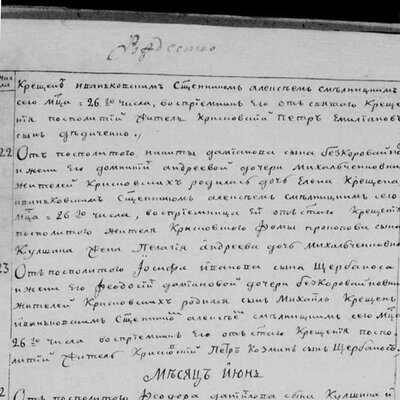 Рождество
Чис
ла
Крещенъ иваньковскимъ Сщенникомъ алексѣемъ
сего Мца = 26 го числа, воспріемникъ Его отъ свѧтаго Креще
нія посполитій Житель Крисковскій Петръ Емиліановъ
сынъ
22 Отъ посполитого никиты даміанова сына безкоровайнаго
и жены Его домникіи андреевой дочери Михальченковни
Жителей Крисковскихъ родилась дочь Елена Крещена
иваньковскимъ Сщенникомъ алексѣемъ сего
Мца = 26 го числа, воспріемница Ей отъ стаго Крещенія
посполитого жителя Крисковского Фомы прокопова сына
Кулшина Жена Пелагія андреева дочь Михальченковна
23 Отъ посполитого Іосифа иванова сына Щербаноса
и жены Его Феодосіи даміановой дочери безкоровайновни
жителей Крисковскихъ родился сынъ Михаилъ Крещенъ
иваньковскимъ Сщенникомъ алексѣемъ сего Мца
26 го числа воспріемникъ Его отъ стаго Крещенія поспо
литій Житель Крисковскій Петръ Козминъ сынъ Щербаносъ
Мѣсяцъ Июнь
Отъ посполитого Феодора данилова сына Кулшина и